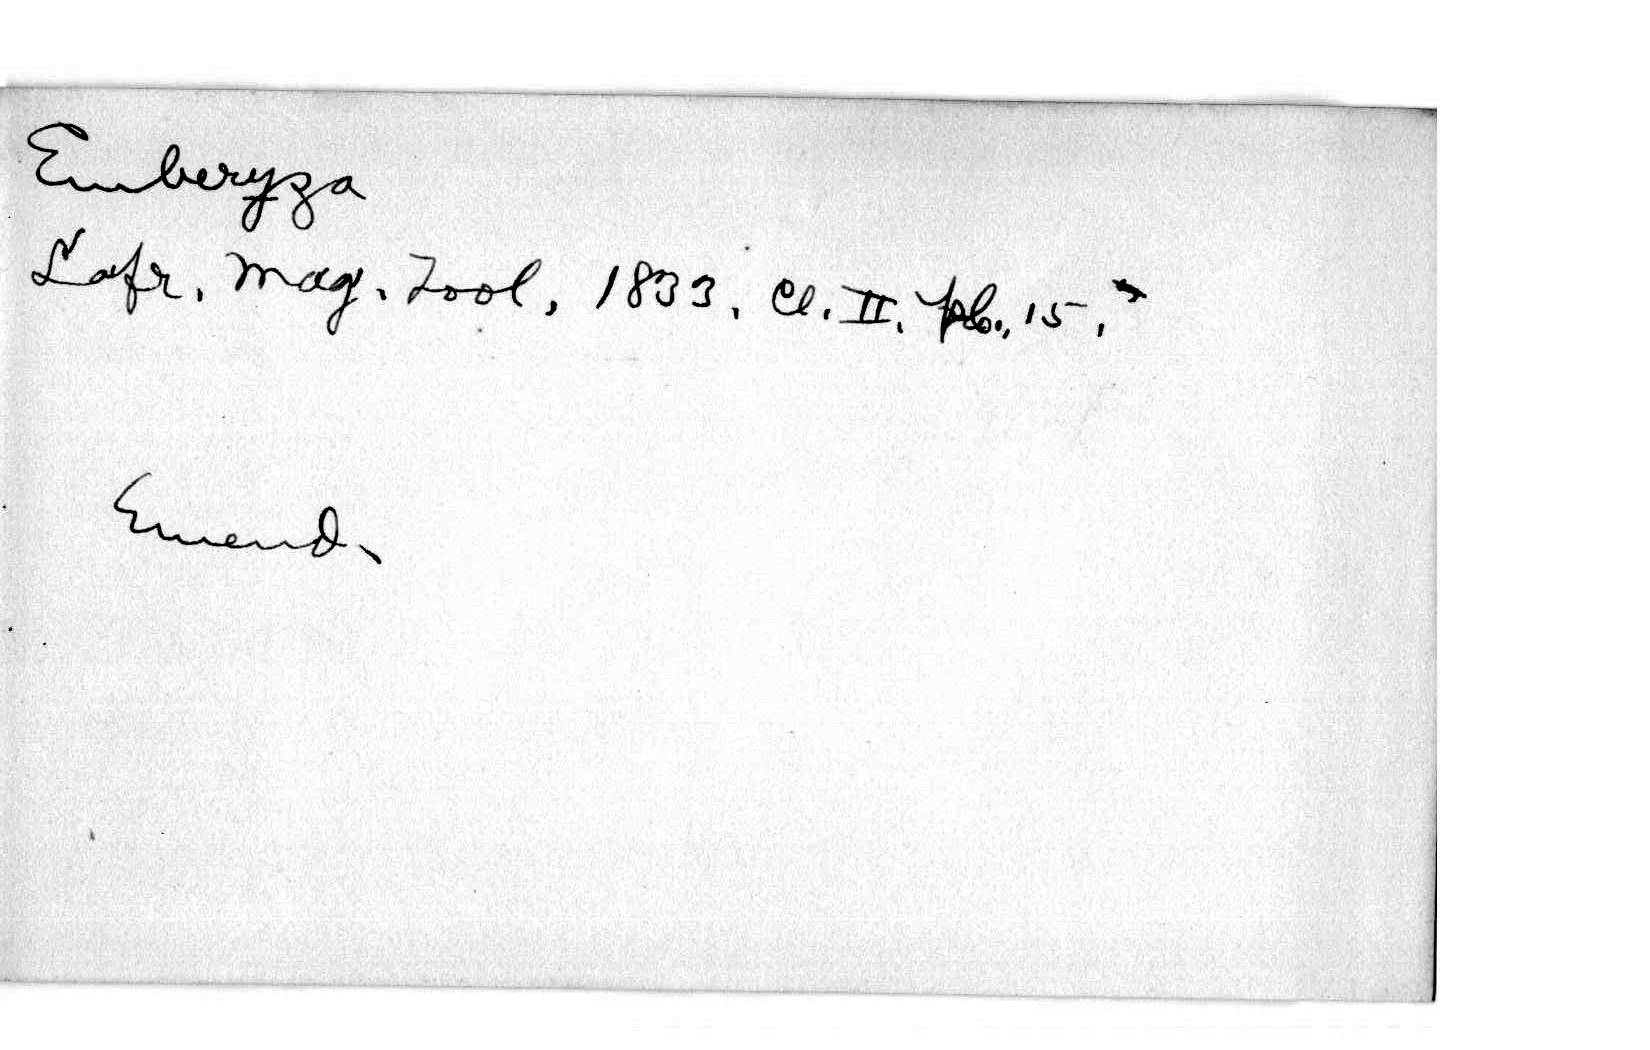 Emberyza
Lafr. Mag. Zool, 1833. Cl. II. pl., 15,
Emend.